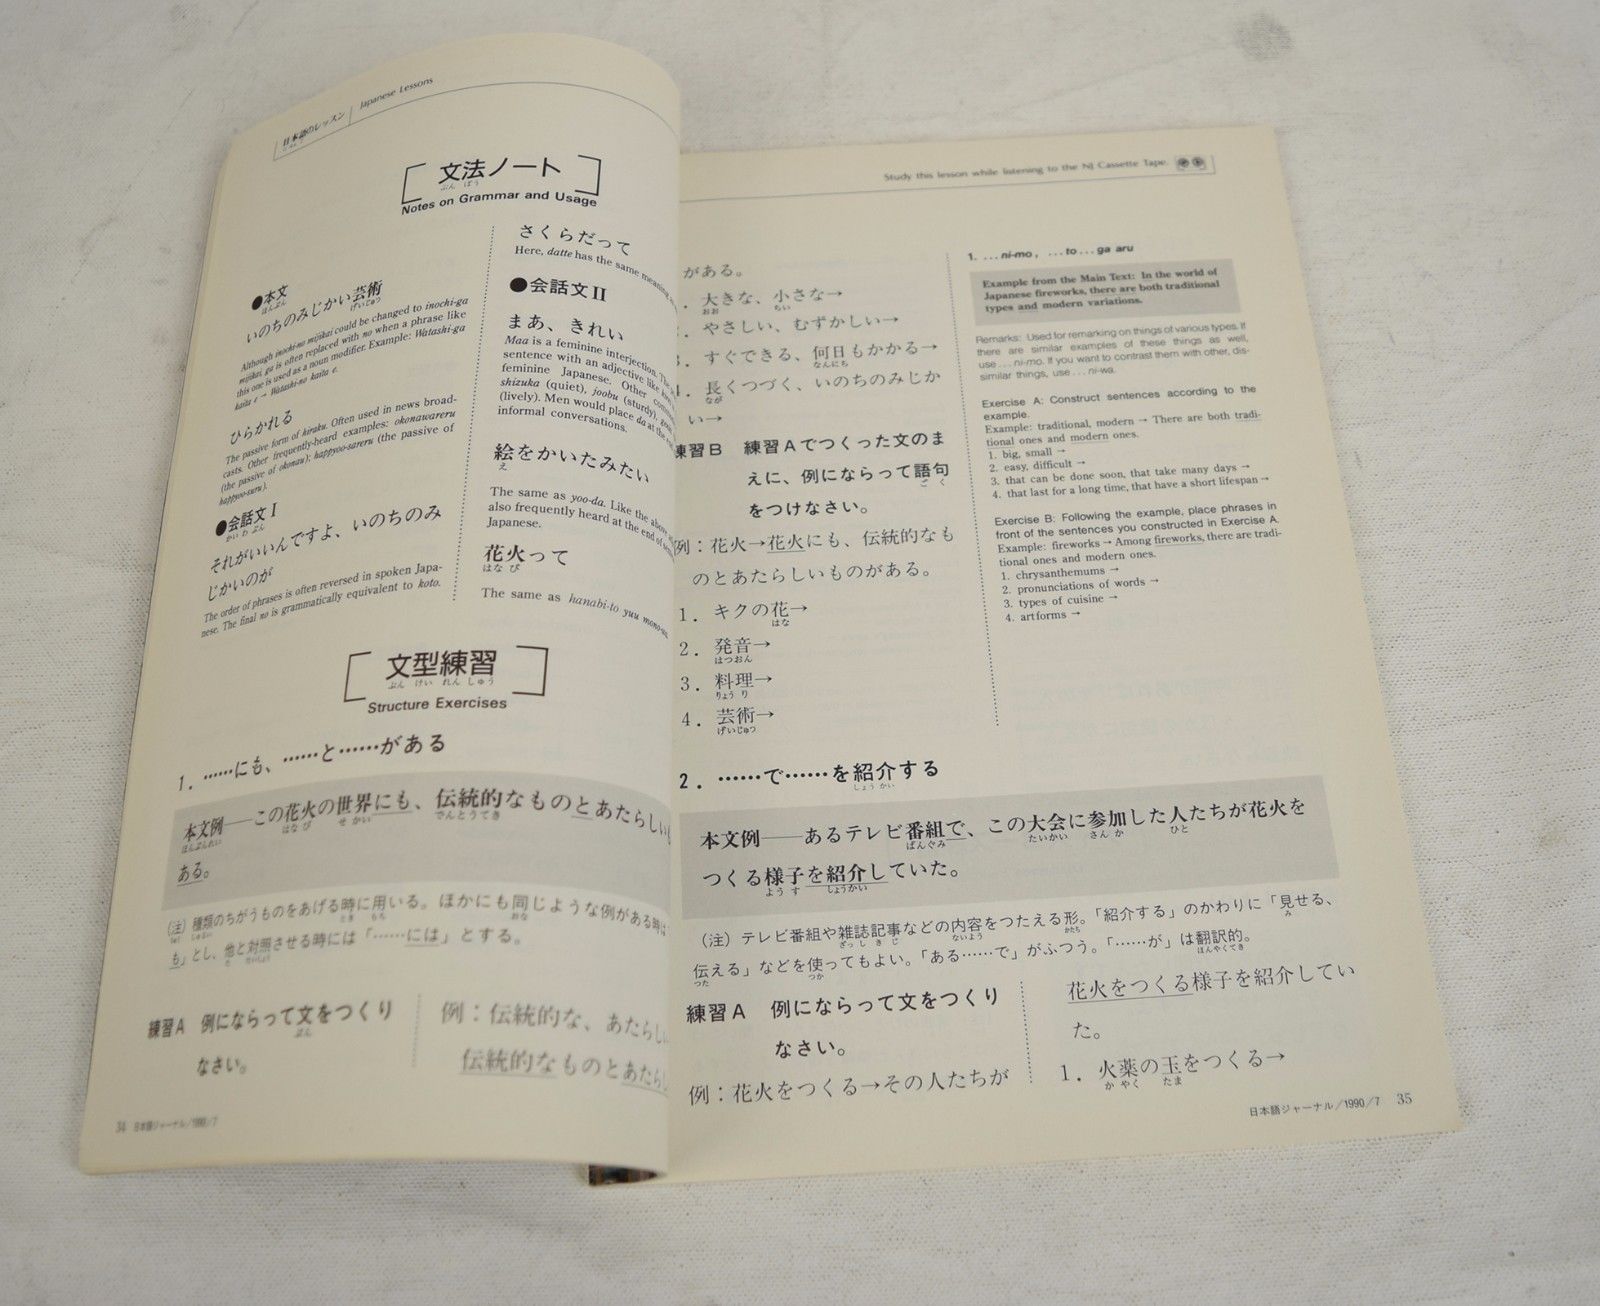 日本語のレッスン
Japanese Lessons
文法ノート
ぶん ぽう
Notes on Grammar and Usage
●本文
ほんぶん
いのちのみじかい芸術
げいじゅつ
Although inochi-no mijikai could be changed to inochi-ga
mijikai, ga is often replaced with no when a phrase like
this one is used as a noun modifier. Example: Watashi-ga
kaita e → Watashi-no kaita e.
ひらかれる
The passive form of hiraku. Often used in news broad-
casts. Other frequently-heard examples: okonawareru
(the passive of okonau); happyoo-sareru (the passive of
happyoo-suru).
●会話文 I
かい わ ぶん
それがいいんですよ、いのちのみ
じかいのが
The order of phrases is often reversed in spoken Japa-
nese. The final no is grammatically equivalent to koto.
さくらだって
Here, datte has the same meaning
●会話文 II
まあ、きれい
Maa is a feminine interjection. The
sentence with an adjective like
feminine Japanese. Other
shizuka (quiet), joobu (sturdy),
(lively). Men would place da at the
informal conversations.
絵をかいたみたい
え
The same as yoo-da. Like the above
also frequently heard at the end of
Japanese.
花火って
はな び
The same as hanabi-to yuu mono-wa.
文型練習
ぶん けい れん しゅう
Structure Exercises
1. ……にも、……と……がある
本文例──この花火の世界にも、伝統的なものとあたらしい
ほんぶんれい はな び せ かい でんとうてき
ある。
(注) 種類のちがうものをあげる時に用いる。ほかにも同じような例がある時は
とき もち おな
も」とし、他と対照させる時には「……には」とする。
練習A 例にならって文をつくり
ぶん
なさい。
例：伝統的な、あたらし
伝統的なものとあたらし
34 日本語ジャーナル／1990／7
Study this lesson while listening to the NJ Cassette Tape.
がある。
大きな、小さな→
おお ちい
やさしい、むずかしい→
すぐできる、何日もかかる→
なんにち
長くつづく、いのちのみじか
なが
い→
練習B 練習Aでつくった文のま
えに、例にならって語句
ご く
をつけなさい。
例：花火→花火にも、伝統的なも
のとあたらしいものがある。
1．キクの花→
はな
2．発音→
はつおん
3．料理→
りょう り
4．芸術→
げいじゅつ
1. ...ni-mo, ...to...ga aru
Example from the Main Text: In the world of
Japanese fireworks, there are both traditional
types and modern variations.
Remarks: Used for remarking on things of various types. If
there are similar examples of these things as well,
use ...ni-mo. If you want to contrast them with other, dis-
similar things, use ...ni-wa.
Exercise A: Construct sentences according to the
example.
Example: traditional, modern → There are both tradi-
tional ones and modern ones.
1. big, small →
2. easy, difficult →
3. that can be done soon, that take many days →
4. that last for a long time, that have a short lifespan →
Exercise B: Following the example, place phrases in
front of the sentences you constructed in Exercise A.
Example: fireworks → Among fireworks, there are tradi-
tional ones and modern ones.
1. chrysanthemums →
2. pronunciations of words →
3. types of cuisine →
4. artforms →
2．……で……を紹介する
しょう かい
本文例──あるテレビ番組で、この大会に参加した人たちが花火を
ばんぐみ たいかい さん か ひと
つくる様子を紹介していた。
よう す しょうかい
(注) テレビ番組や雑誌記事などの内容をつたえる形。「紹介する」のかわりに「見せる、
ざっ し き じ ないよう かたち み
伝える」などを使ってもよい。「ある……で」がふつう。「……が」は翻訳的。
つた つか ほんやくてき
練習A 例にならって文をつくり
なさい。
例：花火をつくる→その人たちが
花火をつくる様子を紹介してい
た。
1．火薬の玉をつくる→
か やく たま
日本語ジャーナル／1990／7 35